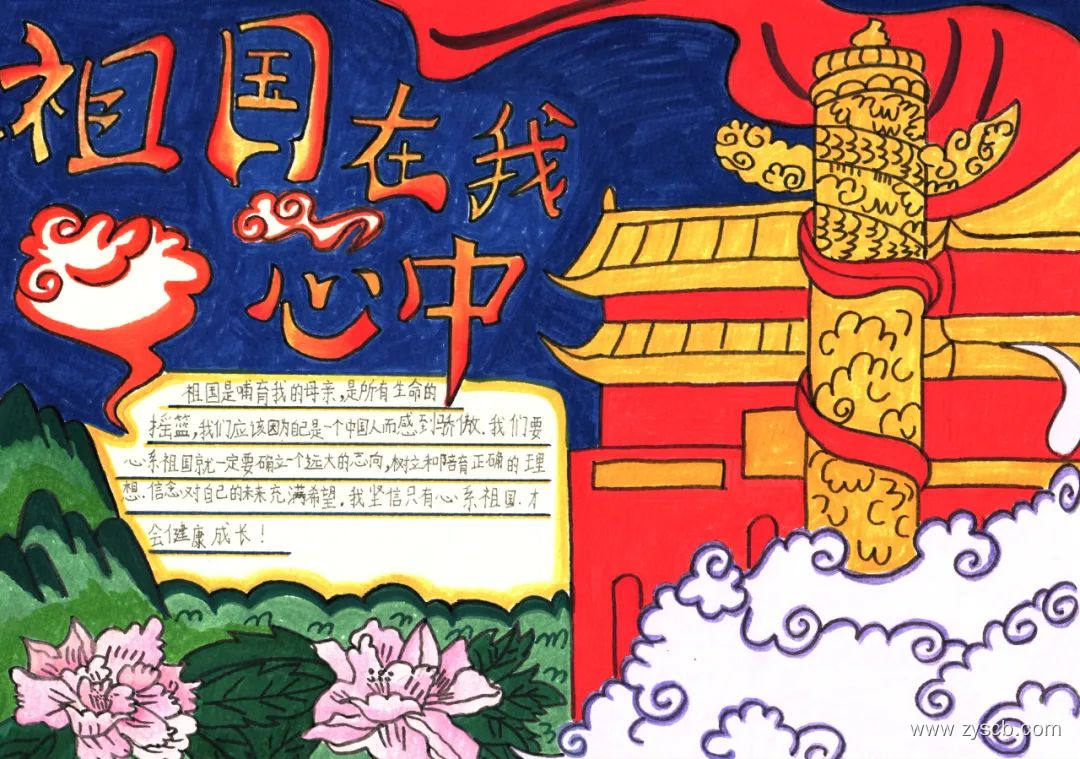 祖国在我
心中
祖国是哺育我的母亲,是所有生命的
摇篮,我们应该因为自己是一个中国人而感到骄傲.我们要
心系祖国就一定要确立一个远大的志向,树立和陪育正确的理
想.信念,对自己的未来充满希望.我坚信只有心系祖国.才
会健康成长!
www.zyscb.com